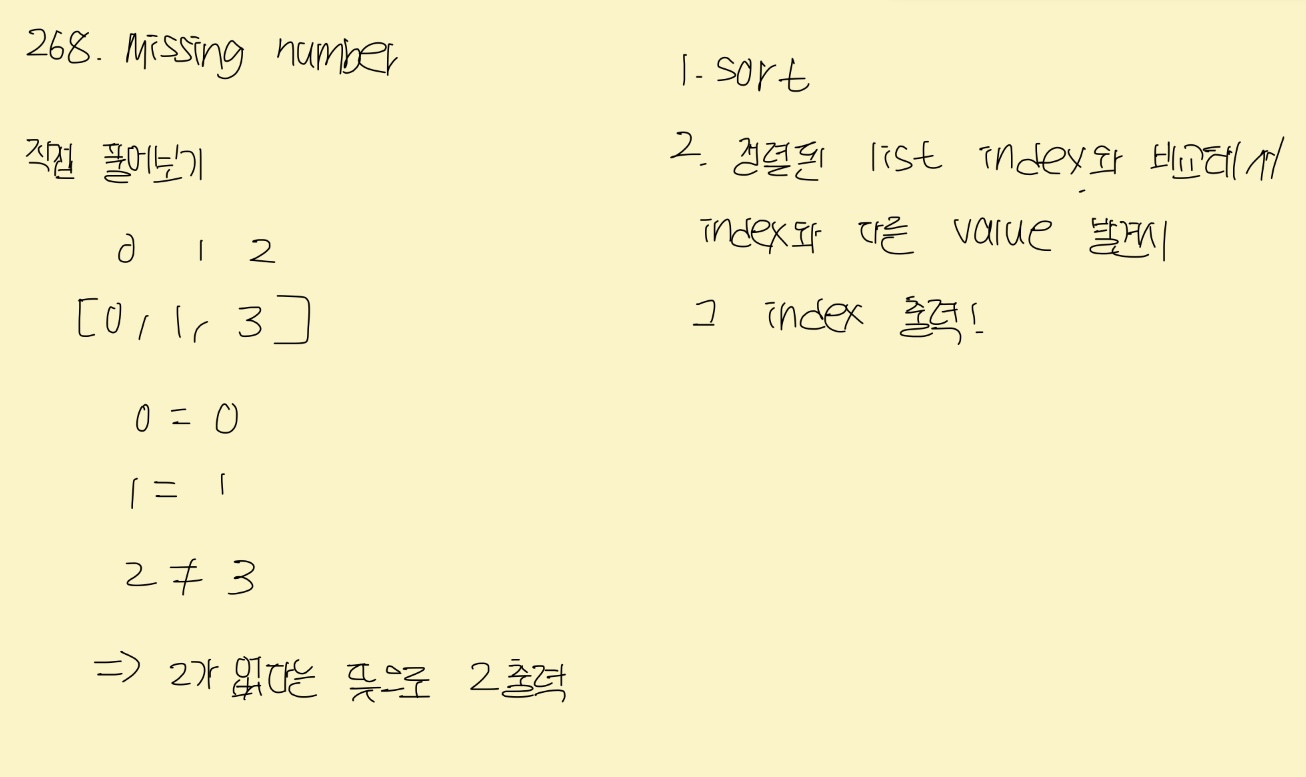 268. Missing number
직접 풀어보기
0 1 2
[0, 1, 3]
0 = 0
1 = 1
2 ≠ 3
=> 2가 없다는 뜻으로 2 출력
1. sort
2. 정렬된 list index와 비교해서
index와 다른 value 발견시
그 index 출력!